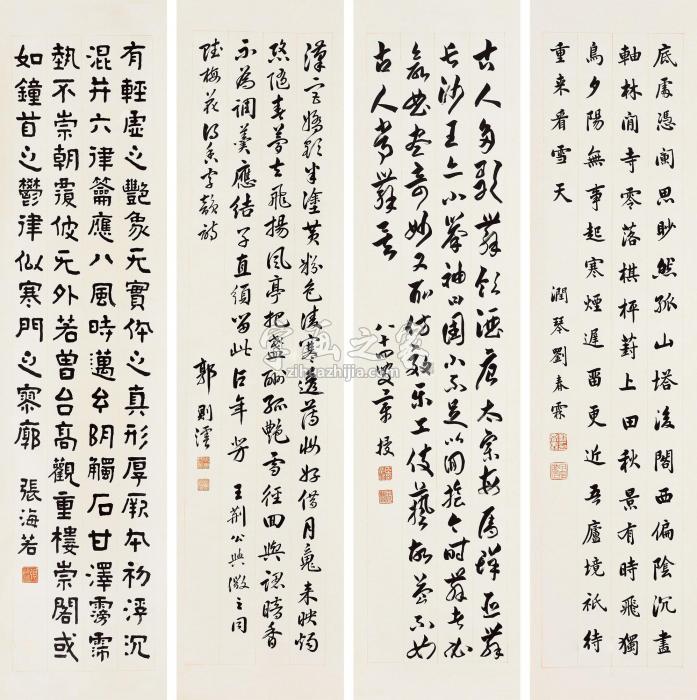 底處憑闌思眇然孤山塔後閣西偏陰沉畫
軸林間寺零落棋枰葑上田秋景有時飛獨
鳥夕陽無事起寒煙遲畱更近吾廬境祗待
重来看雪天
潤琴劉春霖
古人多歌舞飲酒唐太宗每屬群臣舞
長沙王亦小舉袖曰國小不足以回旋今時舞者必
欲曲盡奇妙又耻仿效乐工伎藝故益不如
古人常舞矣
八十四叟
漢宮嬌額半塗黄粉色凌寒透薄妝好借月魂未映燭
恐隨春夢去飛揚風亭把盞酬孤艷雪徑回輿認暗香
不為調羹應結子直須留此占年芳 王荆公與微之同
賦梅花得香字韻詩
郭則澐
有輕虛之艷象无實体之真形厚厥本初浮沉
混并六律籥應八風時邁幺阴觸石甘澤霶霈
埶不崇朝覆彼无外若曾台高觀重樓崇閣或
如鐘首之鬱律似寒門之寥廓
張海若
字画之家
zihuazhijia.com